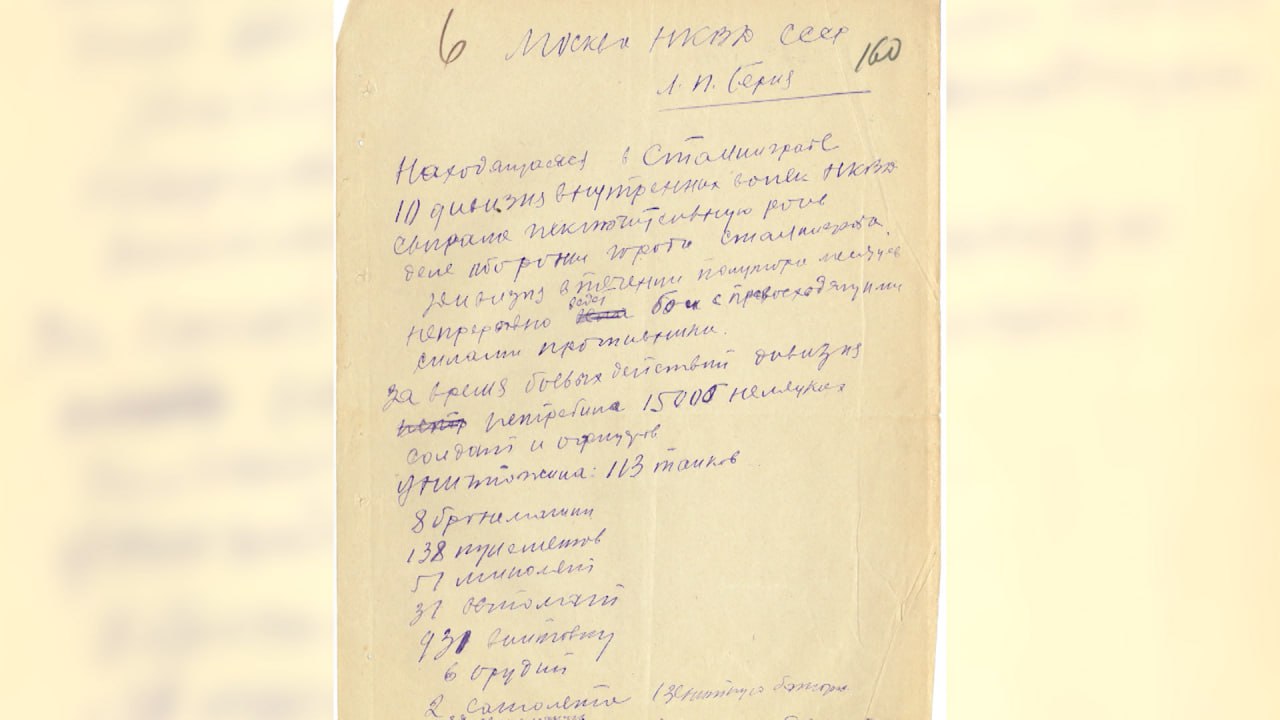 6 Москва НКВД СССР
160
Л. П. Берия
Находящаяся в Сталинграде
10 дивизия внутренних войск НКВД
сыграла исключительную роль
деле обороны города Сталинграда.
Дивизия в течении полутора месяцев
непрерывно ведет бои с превосходящими
силами противника.
За время боевых действий дивизия
истребила 15000 немецких
солдат и офицеров
уничтожила: 113 танков
8 бронемашин
138 пулеметов
51 миномет
31 автомат
931 винтовку
6 орудий
2 самолета 1 зенитную